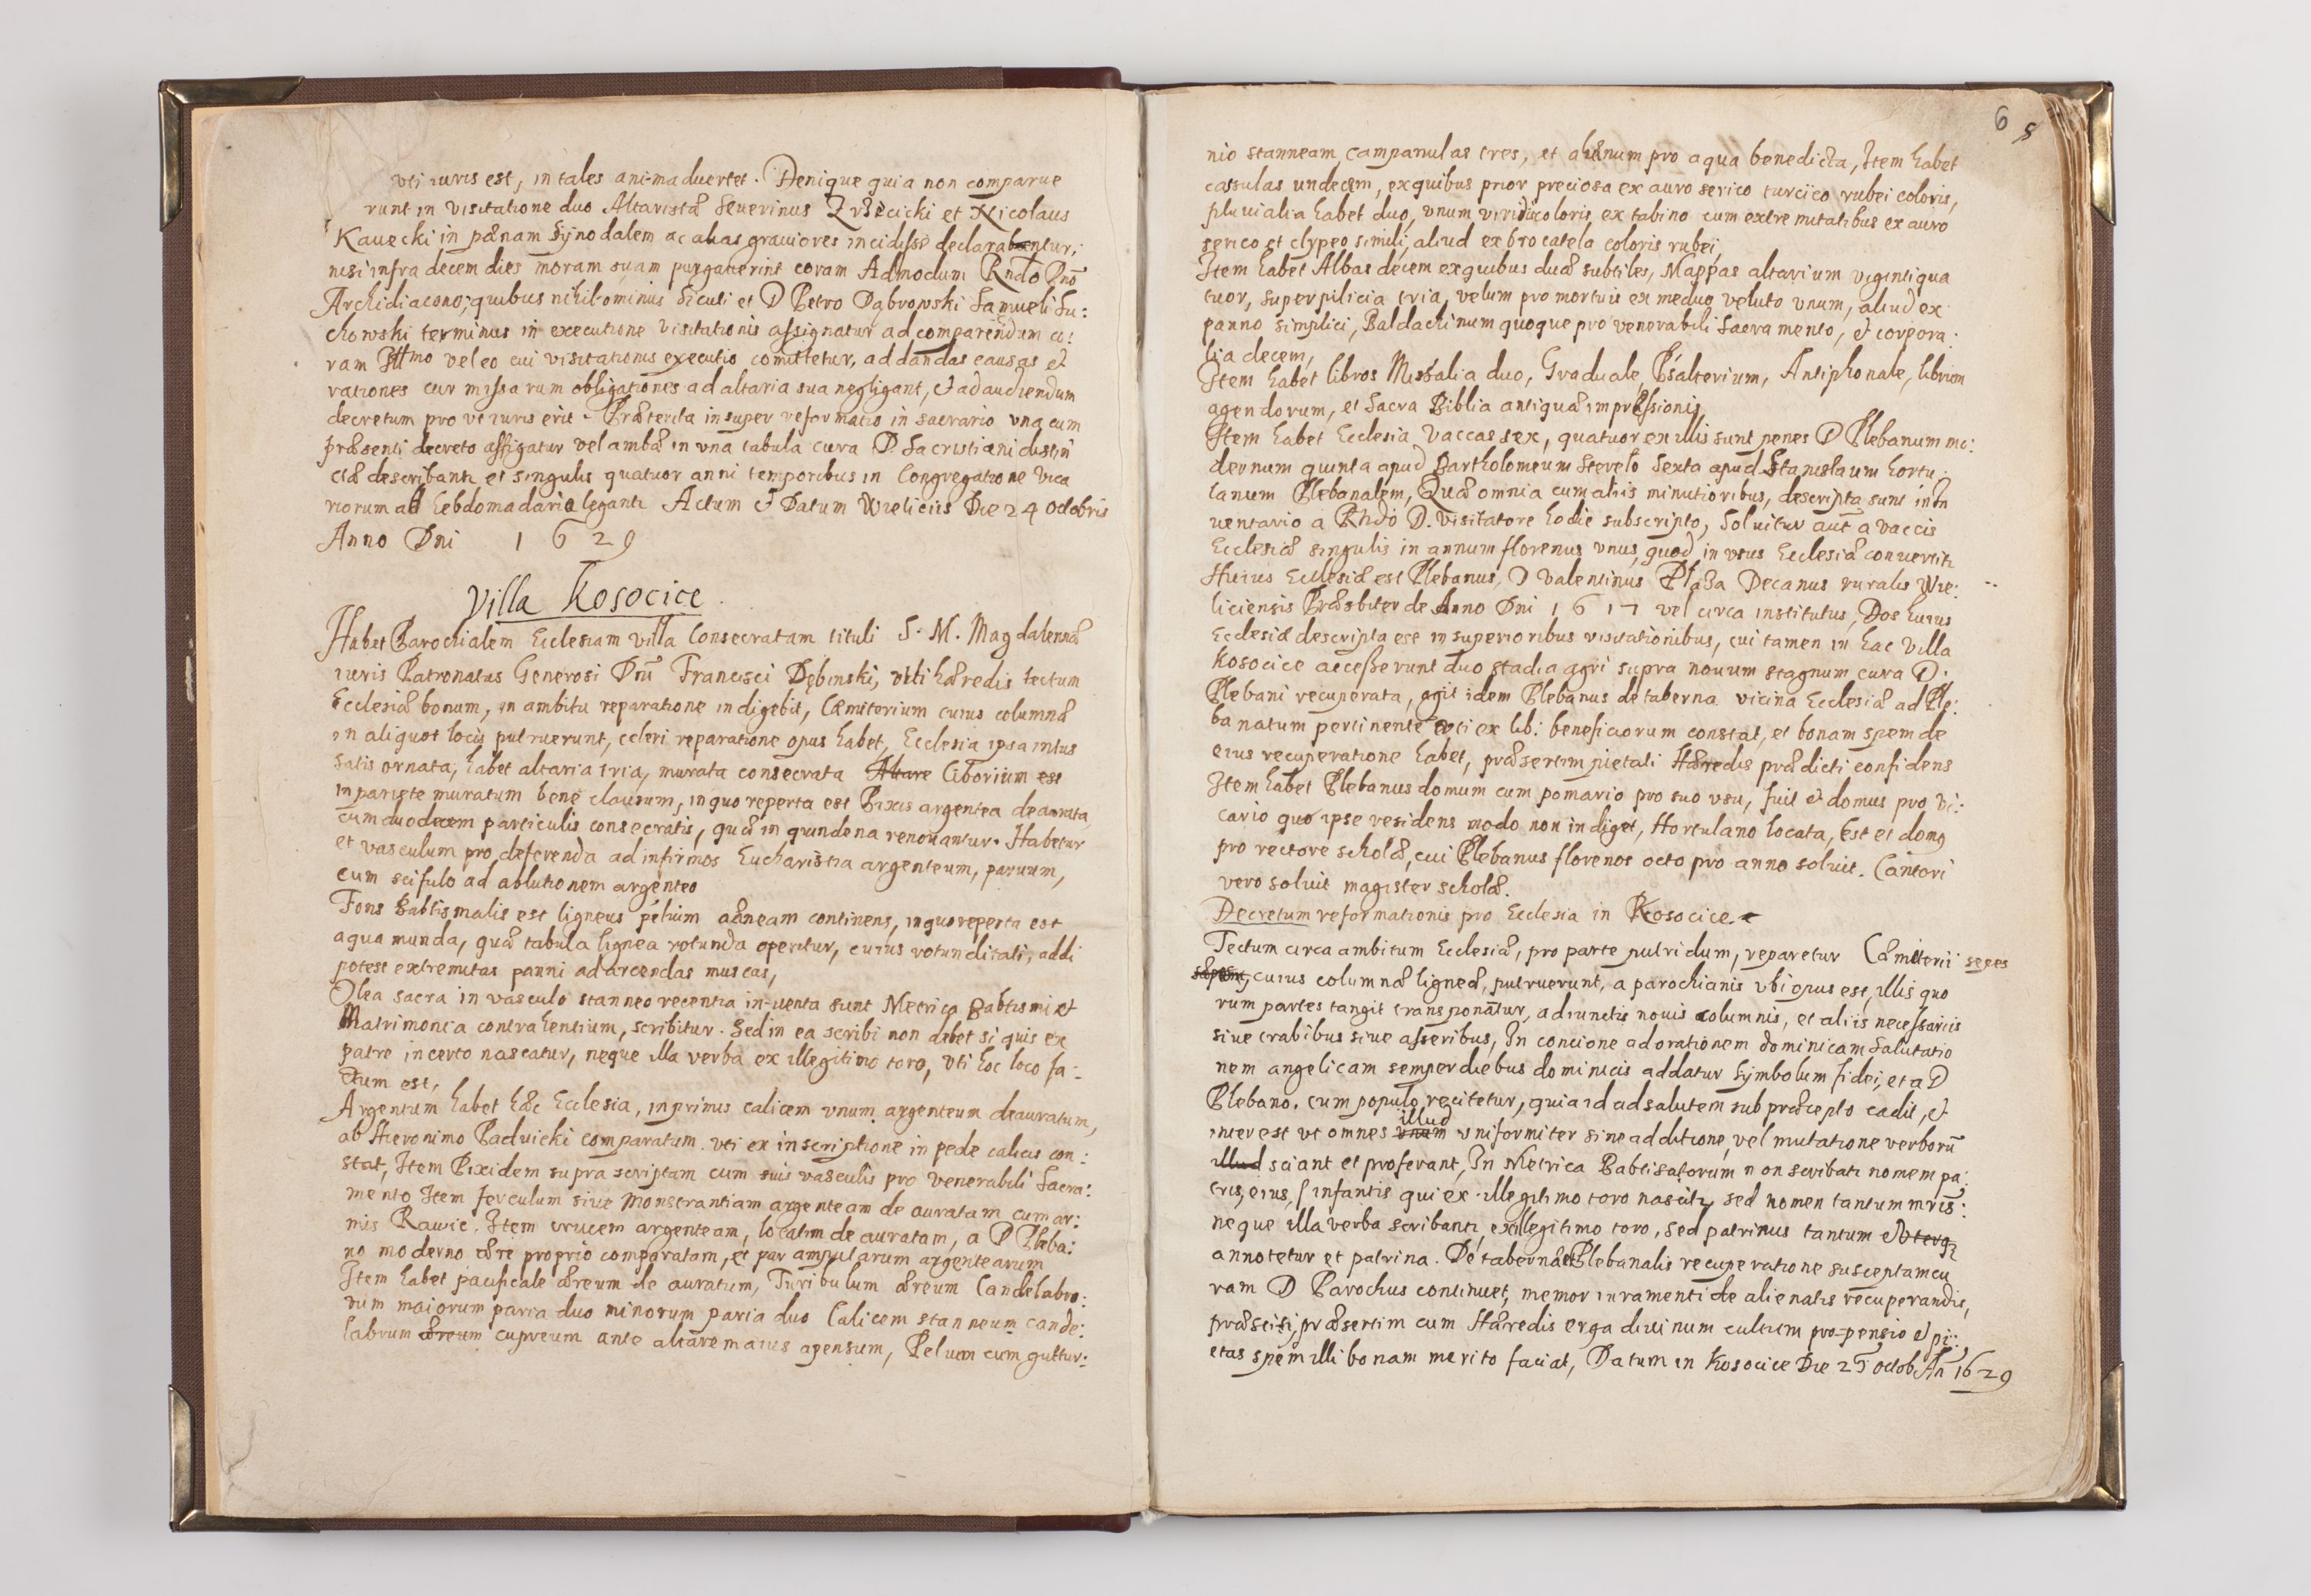 vti iuris est, in tales animaduertet. Denique quia non comparue
runt in visitatione duo Altaristæ Seuerinus et Nicolaus
Kauecki in pænam Synodalem ac alias grauiores incidisse declarabuntur,
nisi infra decem dies moram suam purgauerint coram Admodum Rndo Dno
Archidiacono; quibus nihilominus sicuti et D Petro Dąbrowski Samueli Su:
chowski terminus in executione visitationis assignatur ad comparendum co:
ram Illmo vel eo cui visitationis executio comittetur, ad dandas causas et
rationes cur missarum obligationes ad altaria sua negligant, et ad audiendum
decretum pro vt iuris erit. Præterita insuper reformatio in sacrario vna cum
præsenti decreto affigatur vel ambæ in vna tabula cura D. Sacristiani distin
ctæ describantr et singulis quatuor anni temporibus in Congregatione Vica
riorum ad hebdomadaria legantr Actum et Datum Wieliciis Die 24 Octobris
Anno Dni 1629
Villa Kosocice
Habet Parochialem Ecclesiam villa Consecratam tituli S. M. Magdalennæ
iuris Patronatus Generosi Dni Francisci Dębinski, vti hæredis tectum
Ecclesiæ bonum, in ambitu reparatione indigebit, Cæmiterium cuius columnæ
in aliquot locis putruerunt, celeri reparatione opus habet, Ecclesia ipsa intus
satis ornata, habet altaria tria, murata consecrata Altare Ciborium est
in pariete muratum bene clausum, in quo reperta est Pixis argentea deaurata
cum duodecem particulis consecratis, quæ in quindena renouantur. Habetur
et vasculum pro deferenda ad infirmos Eucharistia argenteum, paruum,
cum scifulo ad ablutionem argenteo
Fons Babtismalis est ligneus peluim æneam continens, in quo reperta est
aqua munda, quæ tabula lignea rotunda operitur, cuius rotunditati, addi
potest extremitas panni ad arcendas muscas,
Olea sacra in vasculo stanneo recentia in-uenta sunt Metrica Babtismi et
Matrimonia contrahentium, scribitur. Sed in ea scribi non debet si quis ex
patre incerto nascatur, neque illa verba ex illegitimo toro, vti hoc loco fa:
ctum est,
Argentum habet hæc Ecclesia, inprimis calicem vnum argenteum deauratum,
ab Hieronimo Padnicki comparatum. vti ex inscriptione in pede calicis con:
stat, Item Pixidem supra scriptam cum suis vasculis pro venerabili Sacra:
mento Item ferculum siue Monstrantiam argenteam de auratam cum ar:
mis Rawic. Item crucem argenteam, locatim de auratam, a D Pleba:
no moderno ære proprio comparatam, et par ampularum argentearum
Item habet pacificale æreum de auratum, Turibulum æreum Candelabro:
rum maiorum paria duo minorum paria duo Calicem stanneum cande:
labrum æreum cupreum ante altare maius apensum, Peluem cum guttur:
6 5
nio stanneam campanulas tres, et ahenum pro aqua benedicta, Item habet
cassulas undecem, ex quibus prior preciosa ex auro serico turcico rubei coloris,
pluuialia habet duo, vnum viridis coloris ex tabino cum extremitatibus ex auro
serico et clypeo simili, aliud ex brocatela coloris rubei,
Item habet Albas decem ex quibus duæ subtiles, Mappas altarium vigintiqua
tuor, superpilicia tria, velum pro mortuis ex medio veluto vnum, aliud ex
panno simplici, Baldachinum quoque pro venerabili Sacramento, et corpora:
lia decem,
Item habet libros Missalia duo, Graduale, Psalterium, Antiphonale, librum
agendorum, et Sacra Biblia antiquæ impressionis,
Item habet Ecclesia vaccas sex, quatuor ex illis sunt penes D Plebanum mo:
dernum quinta apud Bartholomeum Sterelo Sexta apud Stanislaum hortu:
lanum Plebanalem, Quæ omnia cum aliis minutioribus, descripta sunt in In
uentario a Rndo D. visitatore hodie subscripto, Soluitur aut a vaccis
Ecclesiæ singulis in annum florenus vnus, quod in vsus Ecclesiæ conuertitr
Huius Ecclesiæ est Plebanus, D Valentinus Plaza Decanus ruralis Wie:
liciensis Præsbiter de Anno Dni 1617 vel circa institutus, Dos huius
Ecclesiæ descripta est in superioribus visitationibus, cui tamen in hac villa
Kosocice accesserunt duo stadia agri supra nouum stagnum cura D.
Plebani recuperata, agit idem Plebanus de taberna vicina Ecclesiæ ad Ple:
banatum pertinente vti ex lib: beneficiorum constat, et bonam spem de
eius recuperatione habet, præsertim pietati Hæredis prædicti confidens
Item habet Plebanus domum cum pomario pro suo vsu, fuit et domus pro Vi:
cario quo ipse residens modo non indiget, Hortulano locata, Est et domg
pro rectore scholæ, cui Plebanus florenos octo pro anno soluit. Cantori
vero soluit magister scholæ.
Decretum reformationis pro Ecclesia in Kosocice.
Tectum circa ambitum Ecclesiæ, pro parte putridum, reparetur Cæmiterii sepes
sæpem, cuius columnæ ligneæ, putruerunt, a parochianis vbi opus est, illis quo
rum partes tangit transponatur, adiunctis nouis columnis, et aliis necessariis
siue trabibus siue asseribus, In concione ad orationem dominicam Salutatio
nem angelicam semper diebus dominicis addatur Symbolum fidei, et a D
Plebano. cum populo recitetur, quia id ad salutem sub præcepto cadit, et
interest vt omnes vnam illud vniformiter sine additione, vel mutatione verborũ
illud sciant et proferant, In Metrica Babtisatorum non scribatr nomen pa:
tris, eius, infantis qui ex illegitimo toro nascitr, sed nomen tantum mris:
neque illa verba scribantr, ex illegitimo toro, sed patrinus tantum
annotetur et patrina. De tabernæ Plebanalis recuperatione susceptam cu
ram D Parochus continuet, memor iuramenti de alienatis recuperandis,
præsciti, præsertim cum Hæredis erga diuinum cultum pro-pensio et pi:
etas spem illi bonam merito faciat, Datum in Kosocice Die 25 octob An 1629